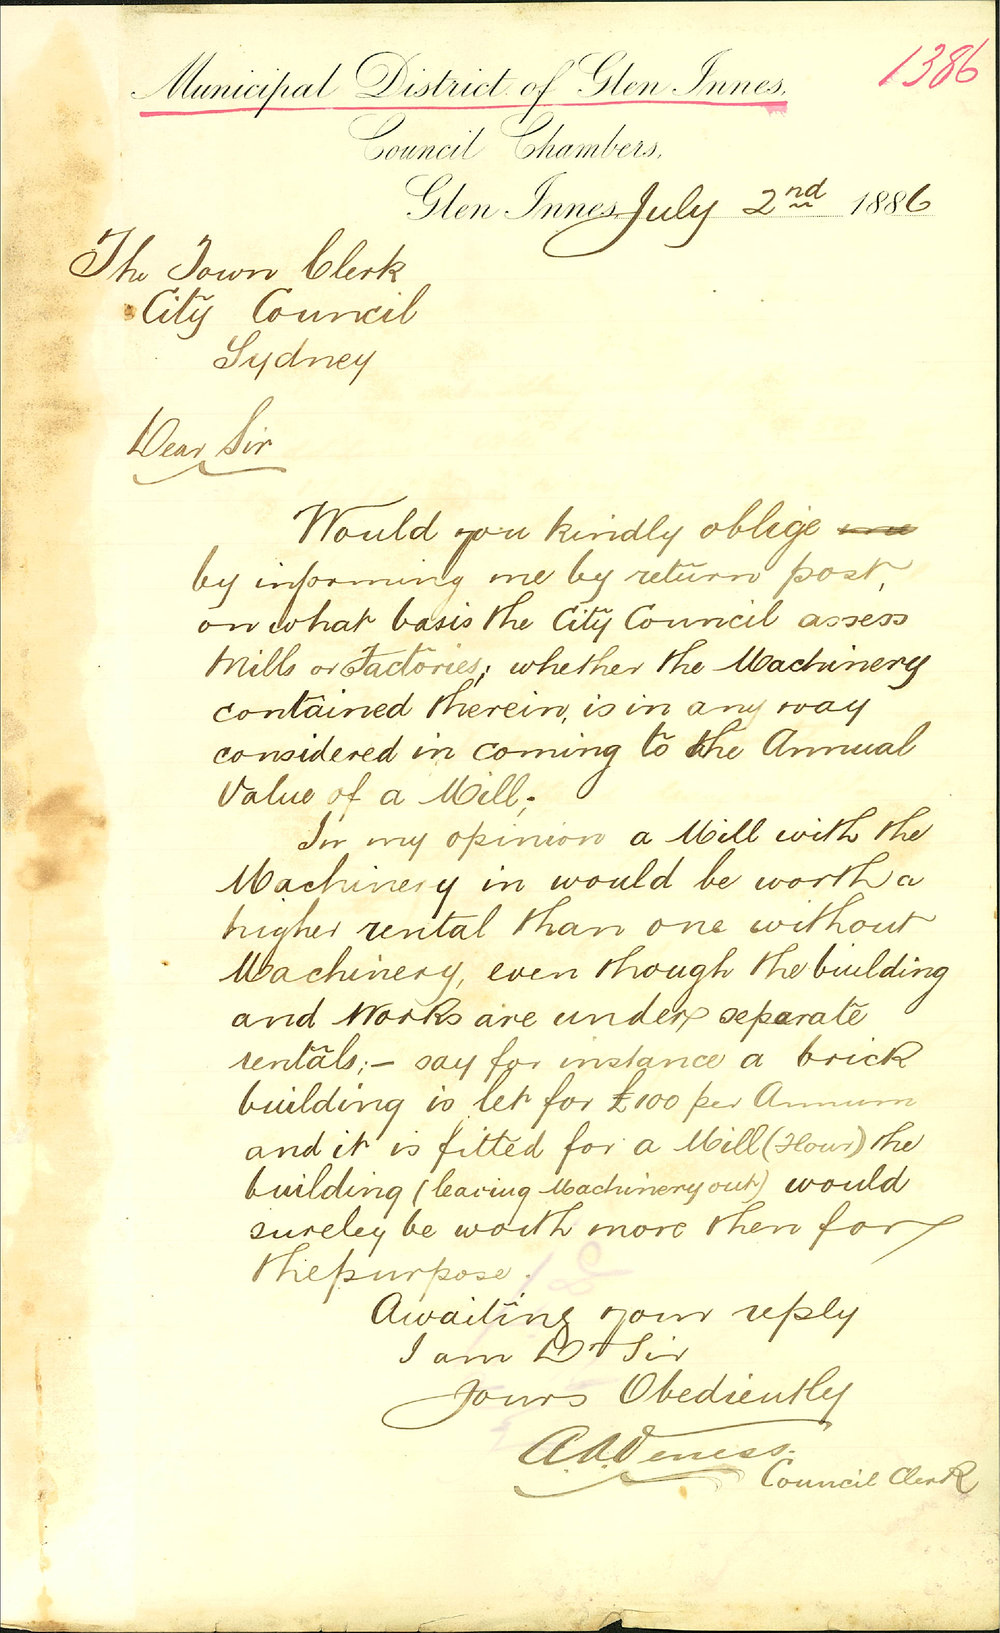 1386
Municipal District of Glen Innes,
Council Chambers,
Glen Innes July 2nd 1886
The Town Clerk
City Council
Sydney
Dear Sir
Would you kindly oblige
by informing me by return post,
on what basis the City Council assess
Mills or Factories; whether the Machinery
contained therein, is in any way
considered in coming to the Annual
Value of a Mill;-
In my opinion a Mill with the
Machinery in would be worth a
higher rental than one without
Machinery, even though the building
and Works are under separate
rentals;- say for instance a brick
building is let for £100 per Annum
and it is fitted for a Mill (Flour) the
building (leaving Machinery out) would
sureley be worth more then for
the purpose.
Awaiting your reply
I am Dr Sir
Yours Obediently
Council Clerk